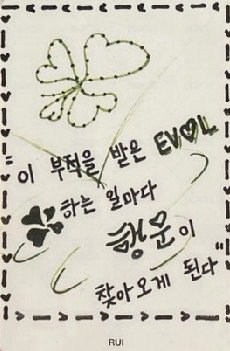 "이 부적을 받은 EVƎ매
하는 일마다
행운이
찾아오게 된다"
RUI